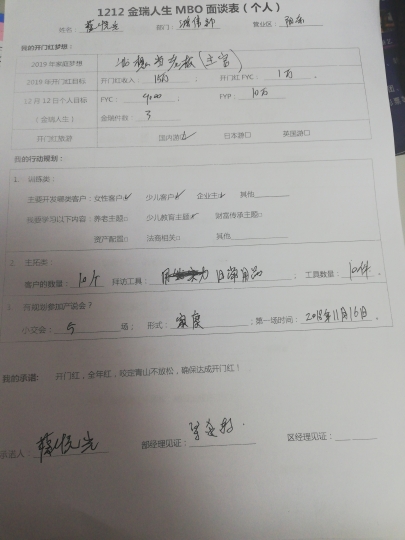 1212 金瑞人生 MBO 面谈表（个人）
姓名： 部门： 营业区：
我的开门红梦想：
2019 年家庭梦想
2019 年开门红目标 开门红收入： 15万 开门红 FYC： 1万
12 月 12 日个人目标 FYC： 4000 FYP： 10万
（金瑞人生） 金瑞件数： 3
开门红旅游 国内游 日本游□ 英国游□
我的行动规划：
1. 训练类：
主要开发哪类客户：女性客户✓ 少儿客户✓ 企业主✓ 其他
我要学习以下内容：养老主题□ 少儿教育主题✓ 财富传承主题□
资产配置□ 法商相关□ 其他
2. 主拓类：
客户的数量： 10个 拜访工具： 日常用品 工具数量： 10件
小交会： 场； 形式： 家庭 ；第一场时间： 2018年11月16日
我的承诺： 开门红，全年红，咬定青山不放松，确保达成开门红！
承诺人： 部经理见证： 区经理见证：